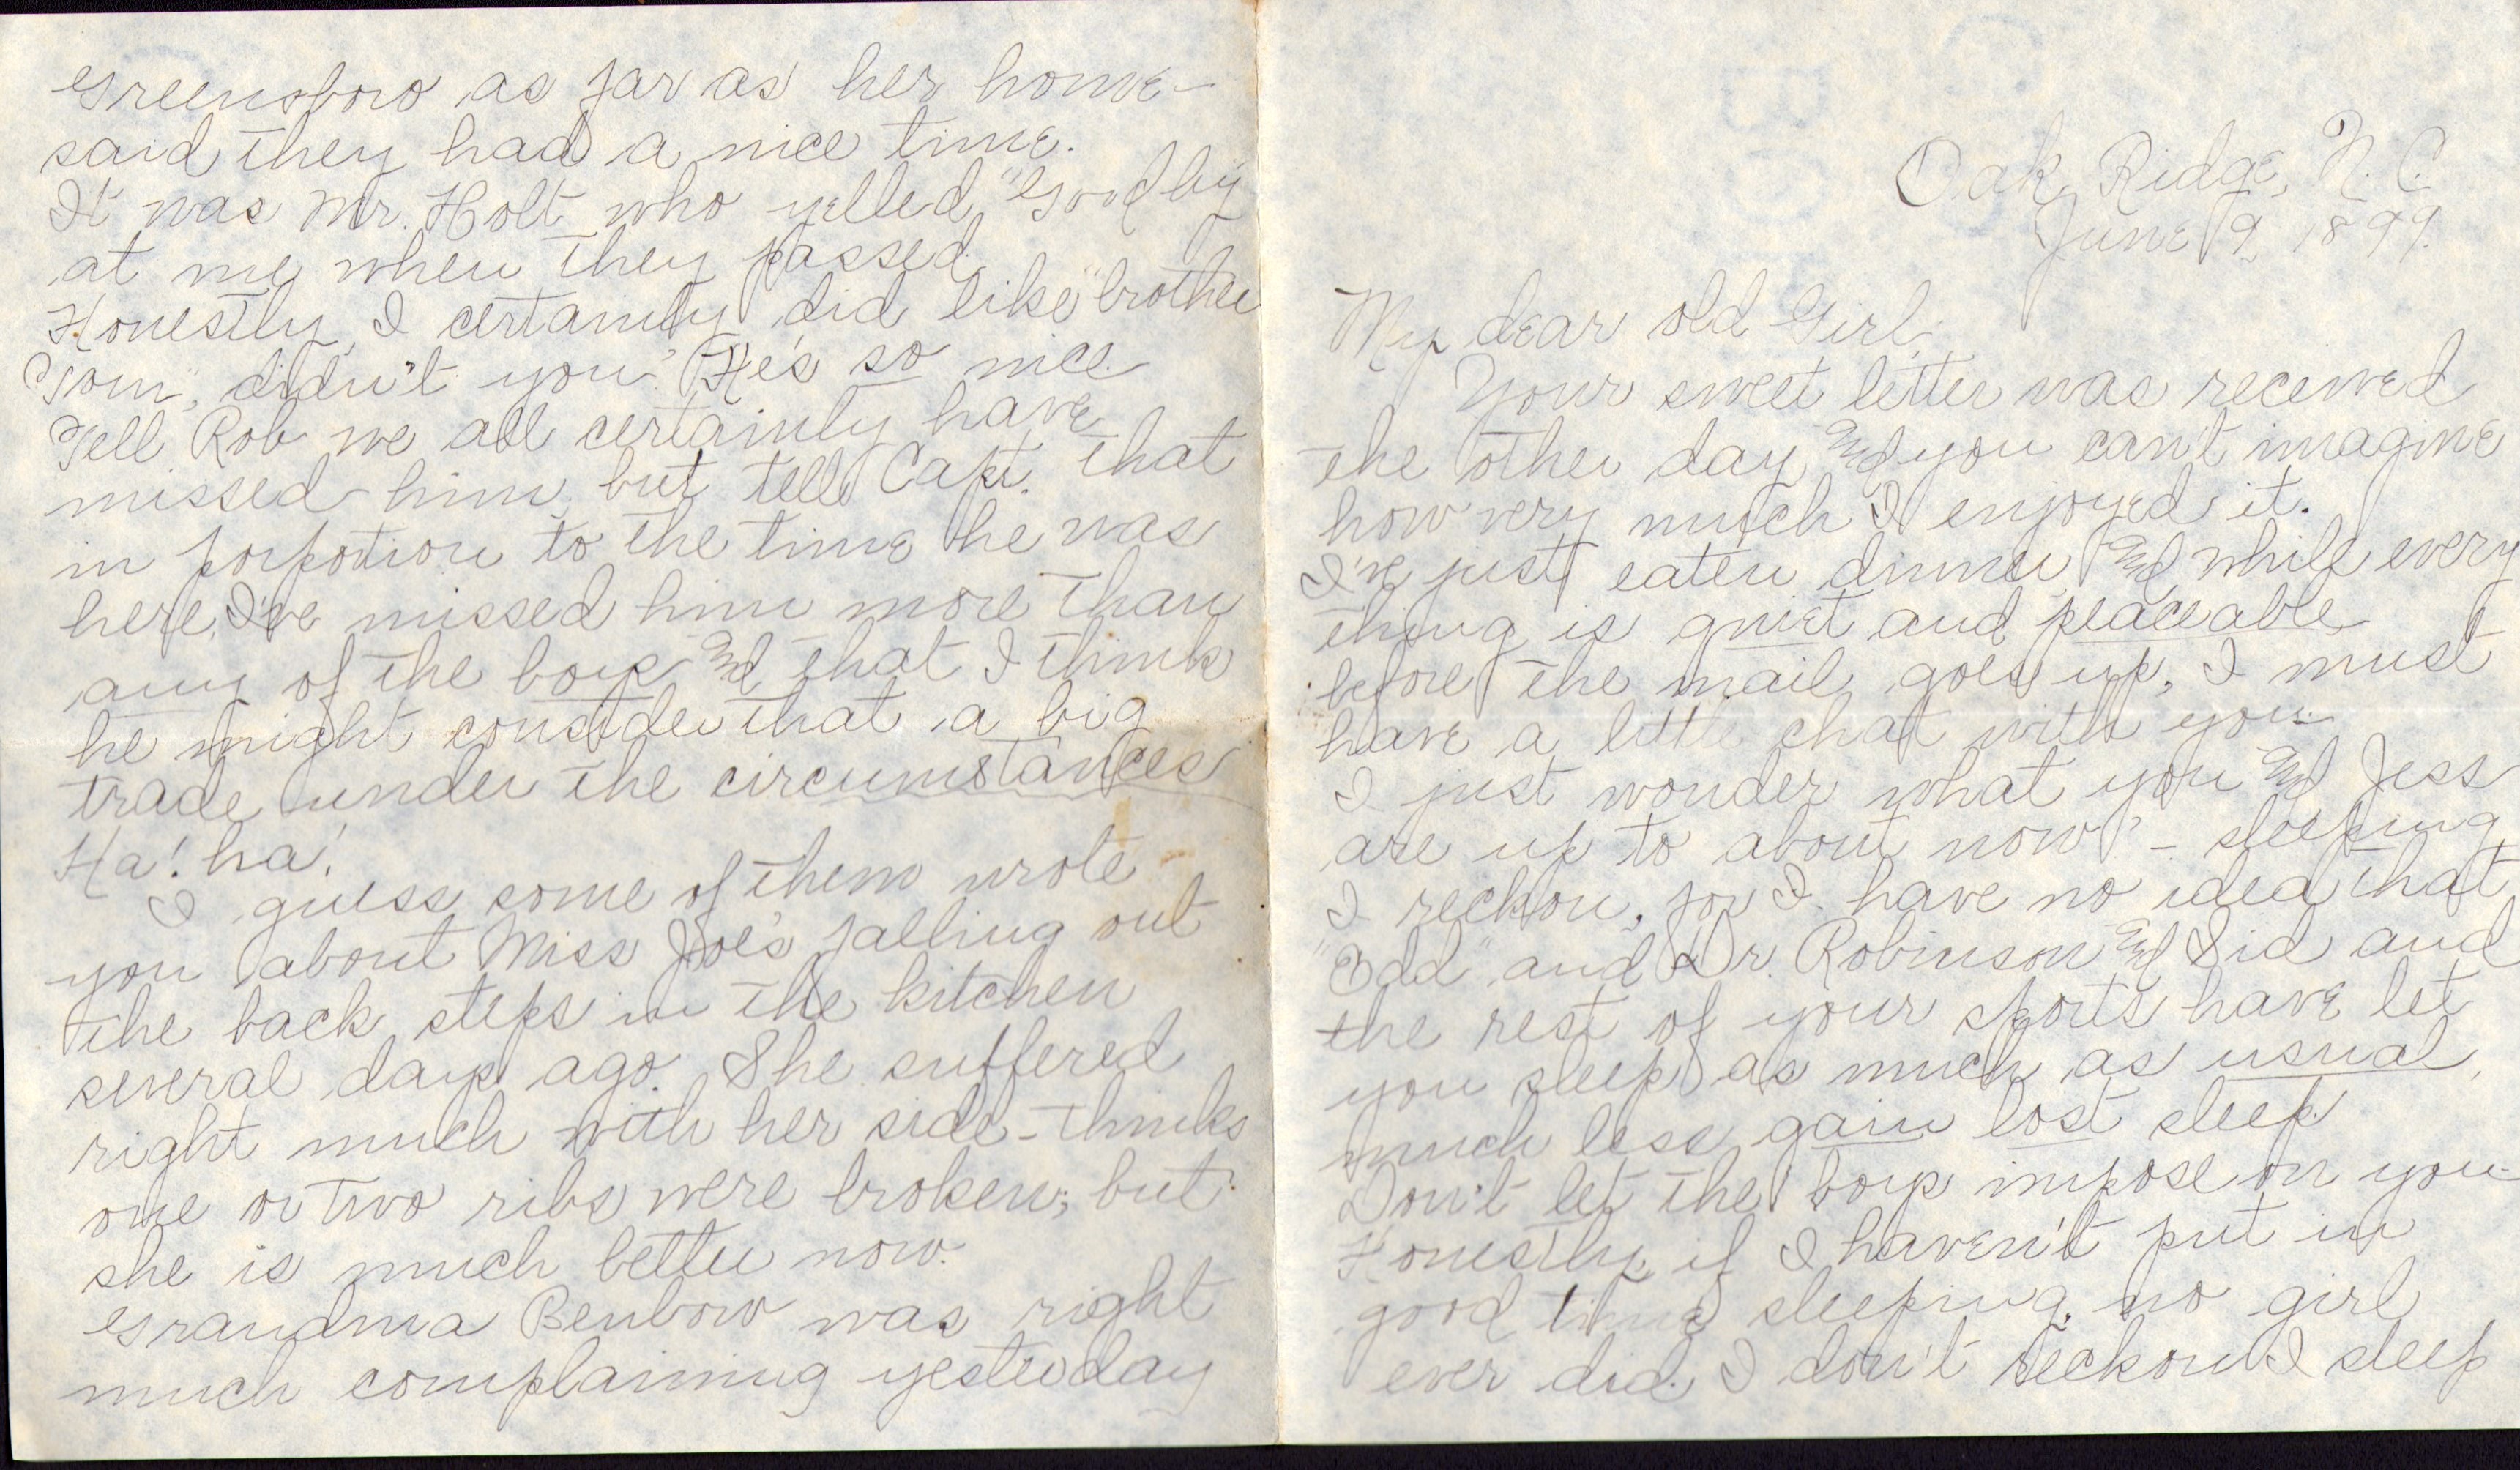 Greensboro as far as her home -
said they had a nice time.
It was Mr. Holt who yelled "Goodby"
at me when they passed.
Honestly, I certainly did like "brother
Tom", didn't you? He's so nice.
Tell Rob we all certainly have
missed him, but tell Capt. that
in porportion to the time he was
here, I've missed him more than
any of the boys and that I think
he might consider that a big
trade under the circumstances
Ha! ha!
I guess some of them wrote
you about Miss Joe's falling out
the back steps in the kitchen
several days ago. She suffered
right much with her side - thinks
one or two ribs were broken; but
she is much better now.
Grandma Benbow was right
much complaining yesterday
Oak Ridge, N. C.
June 9, 1899.
My dear old Girl,
Your sweet letter was received
the other day and you can't imagine
how very much I enjoyed it.
I've just eaten dinner and while every
thing is quiet and peaceable
before the mail goes up, I must
have a little chat with you.
I just wonder what you and Jess
are up to about now? - sleeping
I reckon, for I have no idea that
"Edd" and Dr. Robinson and Sid and
the rest of your sports have let
you sleep as much as usual,
much less gain lost sleep.
Don't let the boys impose on you
Honestly, if I haven't put in
good time sleeping, no girl
ever did. I don't reckon I sleep